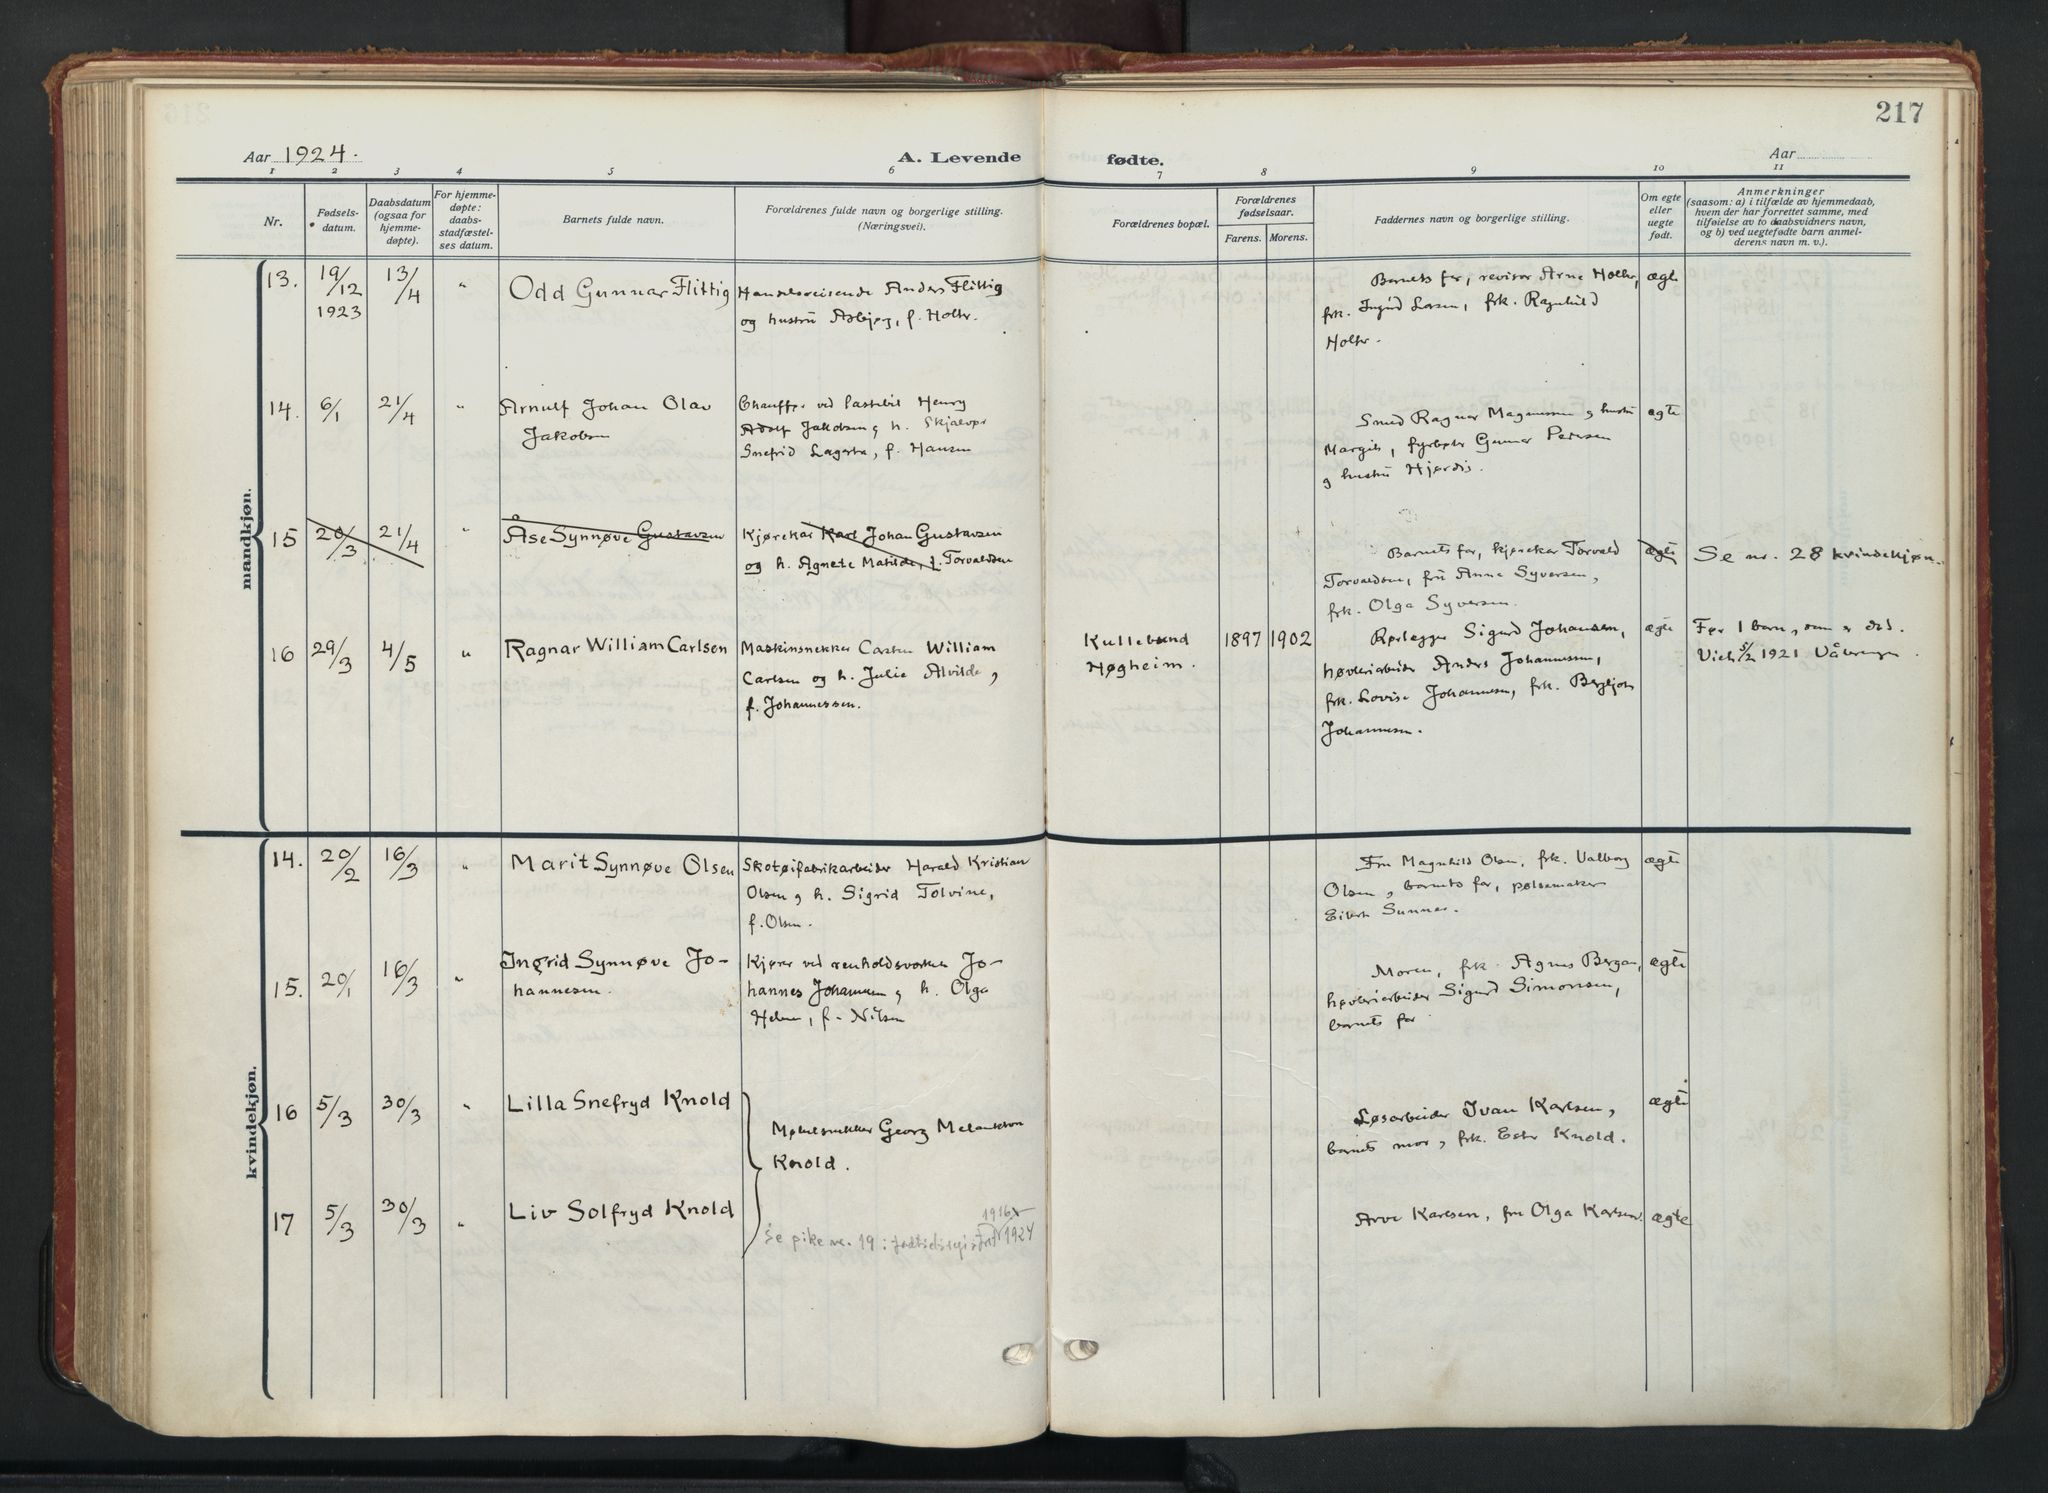 217
Aar 1924.
A. Levende fødte.
Aar
1 2 3 4 5 6 7 8 9 10 11
Nr.
Fødsels-
datum.
Daabsdatum
(ogsaa for
hjemme-
døpte).
For hjemme-
døpte:
daabs-
stadfæstel-
ses datum.
Barnets fulde navn.
Forældrenes fulde navn og borgerlige stilling.
(Næringsvei).
Forældrenes bopæl.
Forældrenes
fødselsaar.
Farens. Morens.
Faddernes navn og borgerlige stilling.
Om egte
eller
uegte
født.
Anmerkninger
(saasom: a) i tilfælde av hjemmedaab,
hvem der har forrettet samme, med
tilføielse av to daabsvidners navn,
og b) ved uegtefødte barn anmel-
derens navn m. v.).
mandkjøn.
13. 19/12 1923 13/4 "
Odd Gunnar Flittig
Handelsreisende Anders Flittig
og hustru Asbjørg, f. Holtr.
Barnets far, revisor Arne Holtr,
frk. Ingrid Larsen, frk. Ragnhild
Holtr.
ægte
14. 6/1 21/4 "
Arnulf Johan Olav
Jakobsen
Chauffør ved lastebil Henry
Adolf Jakobsen og h. Skjalvør
Snefrid Lagerta, f. Hansen
Smed Ragnar Magnussen og hustru
Margit, fyrbøter Gunnar Pedersen
og hustru Hjørdis.
ægte
15 20/3 21/4 "
Åse Synnøve Gustavsen
Kjørekar Karl Johan Gustavsen
og h. Agnete Matilde, f. Torvaldsen
Barnets far, kjørekar Torvald
Torvaldsen, frü Anna Syversen,
frk. Olga Syversen.
ægte
Se nr. 28 kvindekjøn.
16 29/3 4/5 "
Ragnar William Carlsen
Maskinsnekker Carsten William
Carlsen og h. Julie Alvilde,
f. Johannessen.
Kullebund
Høgheim.
1897 1902
Rørlegger Sigurd Johansen,
høvleriarbeider Anders Johannessen,
frk. Lovise Johannesen, frk. Bergljot
Johannesen.
ægte
Før 1 barn, som er død.
Viet 5/2 1921 Vålerengen.
kvindekjøn.
14. 20/2 16/3 "
Marit Synnøve Olsen
Skotøifabrikarbeider Harald Kristian
Olsen og h. Sigrid Tolvine,
f. Olsen.
Fru Magnhild Olsen, frk. Valborg
Olsen, barnets far, pølsemaker
Eilert Sunnar.
ægte
15. 20/1 16/3 "
Ingrid Synnøve Jo-
hannesen.
Kjører ved renholdsverket Jo-
hannes Johannesen og h. Olga
Helene, f. Nilsen
Moren, frk. Agnes Bergan,
høvleriarbeider Sigurd Simonsen,
barnets far
ægte
16 5/3 30/3 "
Lilla Snefryd Knold
Møbelsnekker Georg Melankton
Knold.
Løsarbeider Ivan Karlsen,
barnets mor, frk. Ester Knold.
ægte
17 5/3 30/3 "
Liv Solfryd Knold
1916
Se pike nr. 19 i 1924
Arve Karlsen, fru Olga Karlsen.
ægte